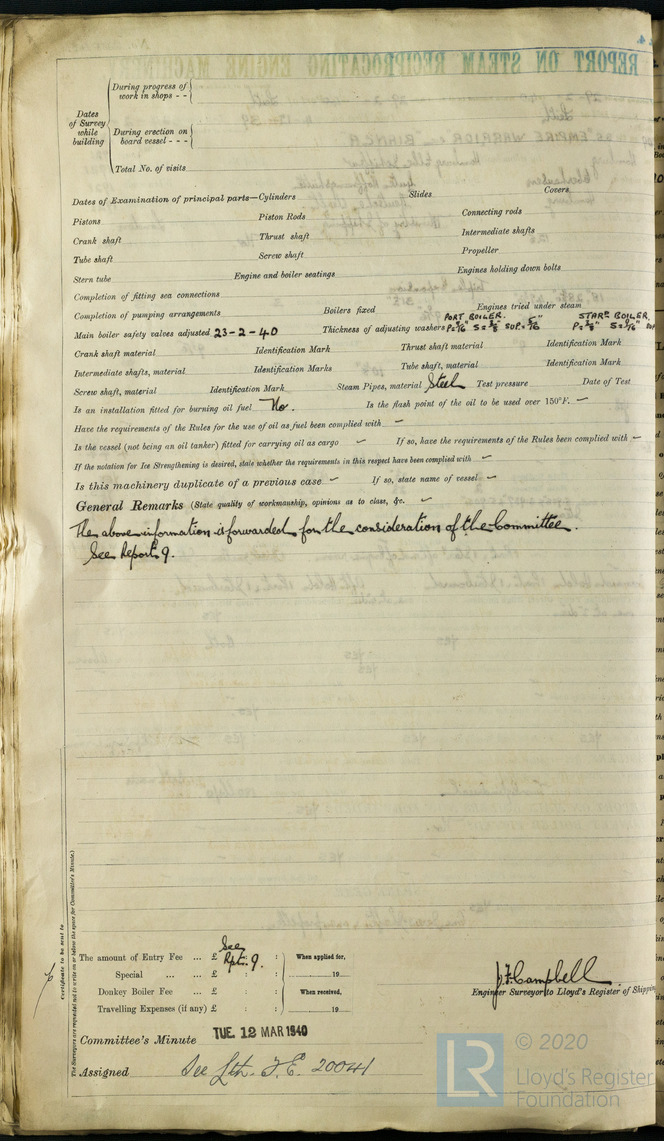 4.
REPORT ON STEAM RECIPROCATING ENGINE MACHIN
Dates of Survey while building
During progress of work in shops - -
During erection on board vessel - - -
Total No. of visits
Dates of Examination of principal parts—Cylinders Slides Covers
Pistons Piston Rods Connecting rods
Crank shaft Thrust shaft Intermediate shafts
Tube shaft Screw shaft Propeller
Stern tube Engine and boiler seatings Engines holding down bolts
Completion of fitting sea connections
Completion of pumping arrangements Boilers fixed Engines tried under steam
PORT BOILER. STARD BOILER
Main boiler safety valves adjusted 23-2-40 Thickness of adjusting washers
Crank shaft material Identification Mark Thrust shaft material Identification Mark
Intermediate shafts, material Identification Marks Tube shaft, material Identification Mark
Screw shaft, material Identification Mark Steam Pipes, material Steel Test pressure Date of Test
Is an installation fitted for burning oil fuel No. Is the flash point of the oil to be used over 150°F. ✓
Have the requirements of the Rules for the use of oil as fuel been complied with ✓
Is the vessel (not being an oil tanker) fitted for carrying oil as cargo ✓ If so, have the requirements of the Rules been complied with ✓
If the notation for Ice Strengthening is desired, state whether the requirements in this respect have been complied with ✓
Is this machinery duplicate of a previous case ✓ If so, state name of vessel ✓
General Remarks (State quality of workmanship, opinions as to class, &c. ✓
The above information is forwarded for the consideration of the Committee.
See Report 9.
Certificate to be sent to
The Surveyors are requested not to write on or below the space for Committee's Minute.
See
The amount of Entry Fee ... £ Rpt. 9. : When applied for,
Special ... ... £ : 19
Donkey Boiler Fee ... £ : : When received,
Travelling Expenses (if any) £ : : 19
J.F. Campbell
Engineer Surveyor to Lloyd's Register of Shipping
Committee's Minute TUE. 12 MAR 1940
Assigned See Lth. F.E. 20041
LR © 2020
Lloyd's Register
Foundation